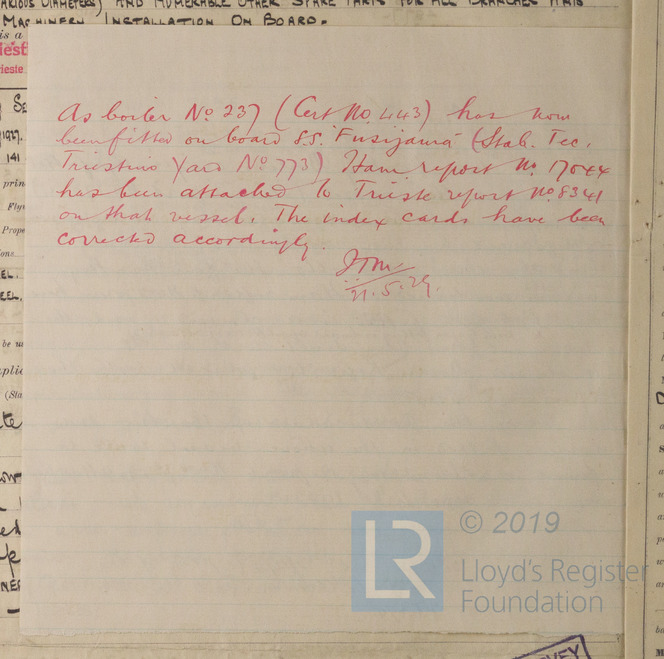 AND NUMERABLE OTHER SPARE PARTS FOR ALL BRANCHES
MACHINERY INSTALLATION ON BOARD.
is a
rieste
1927.
141
prin
Prope
EEL.
be u
(Sta
As boiler No 237 (Cert No. 443) has now
been fitted on board S.S. "Fusijama" (Stab. Tec.
Triestino Yard No 773) Ham. report No. 17044
has been attached to Trieste report No 8341
on that vessel. The index cards have been
corrected accordingly.
21.5.29.
LR
© 2019
Lloyd's Register
Foundation
VEY